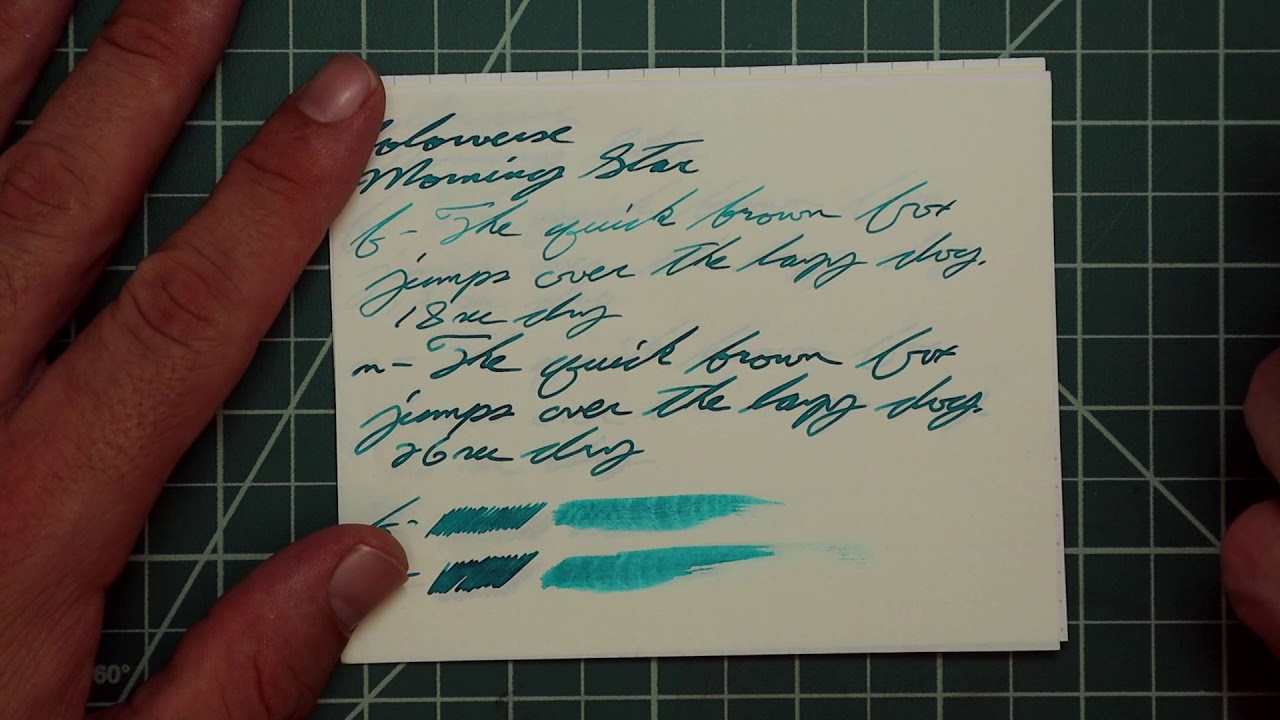 olorverse
Morning Star
f- The quick brown fox
jumps over the lazy dog.
18 sec dry
m- The quick brown fox
jumps over the lazy dog.
26 sec dry
f-
-
60°